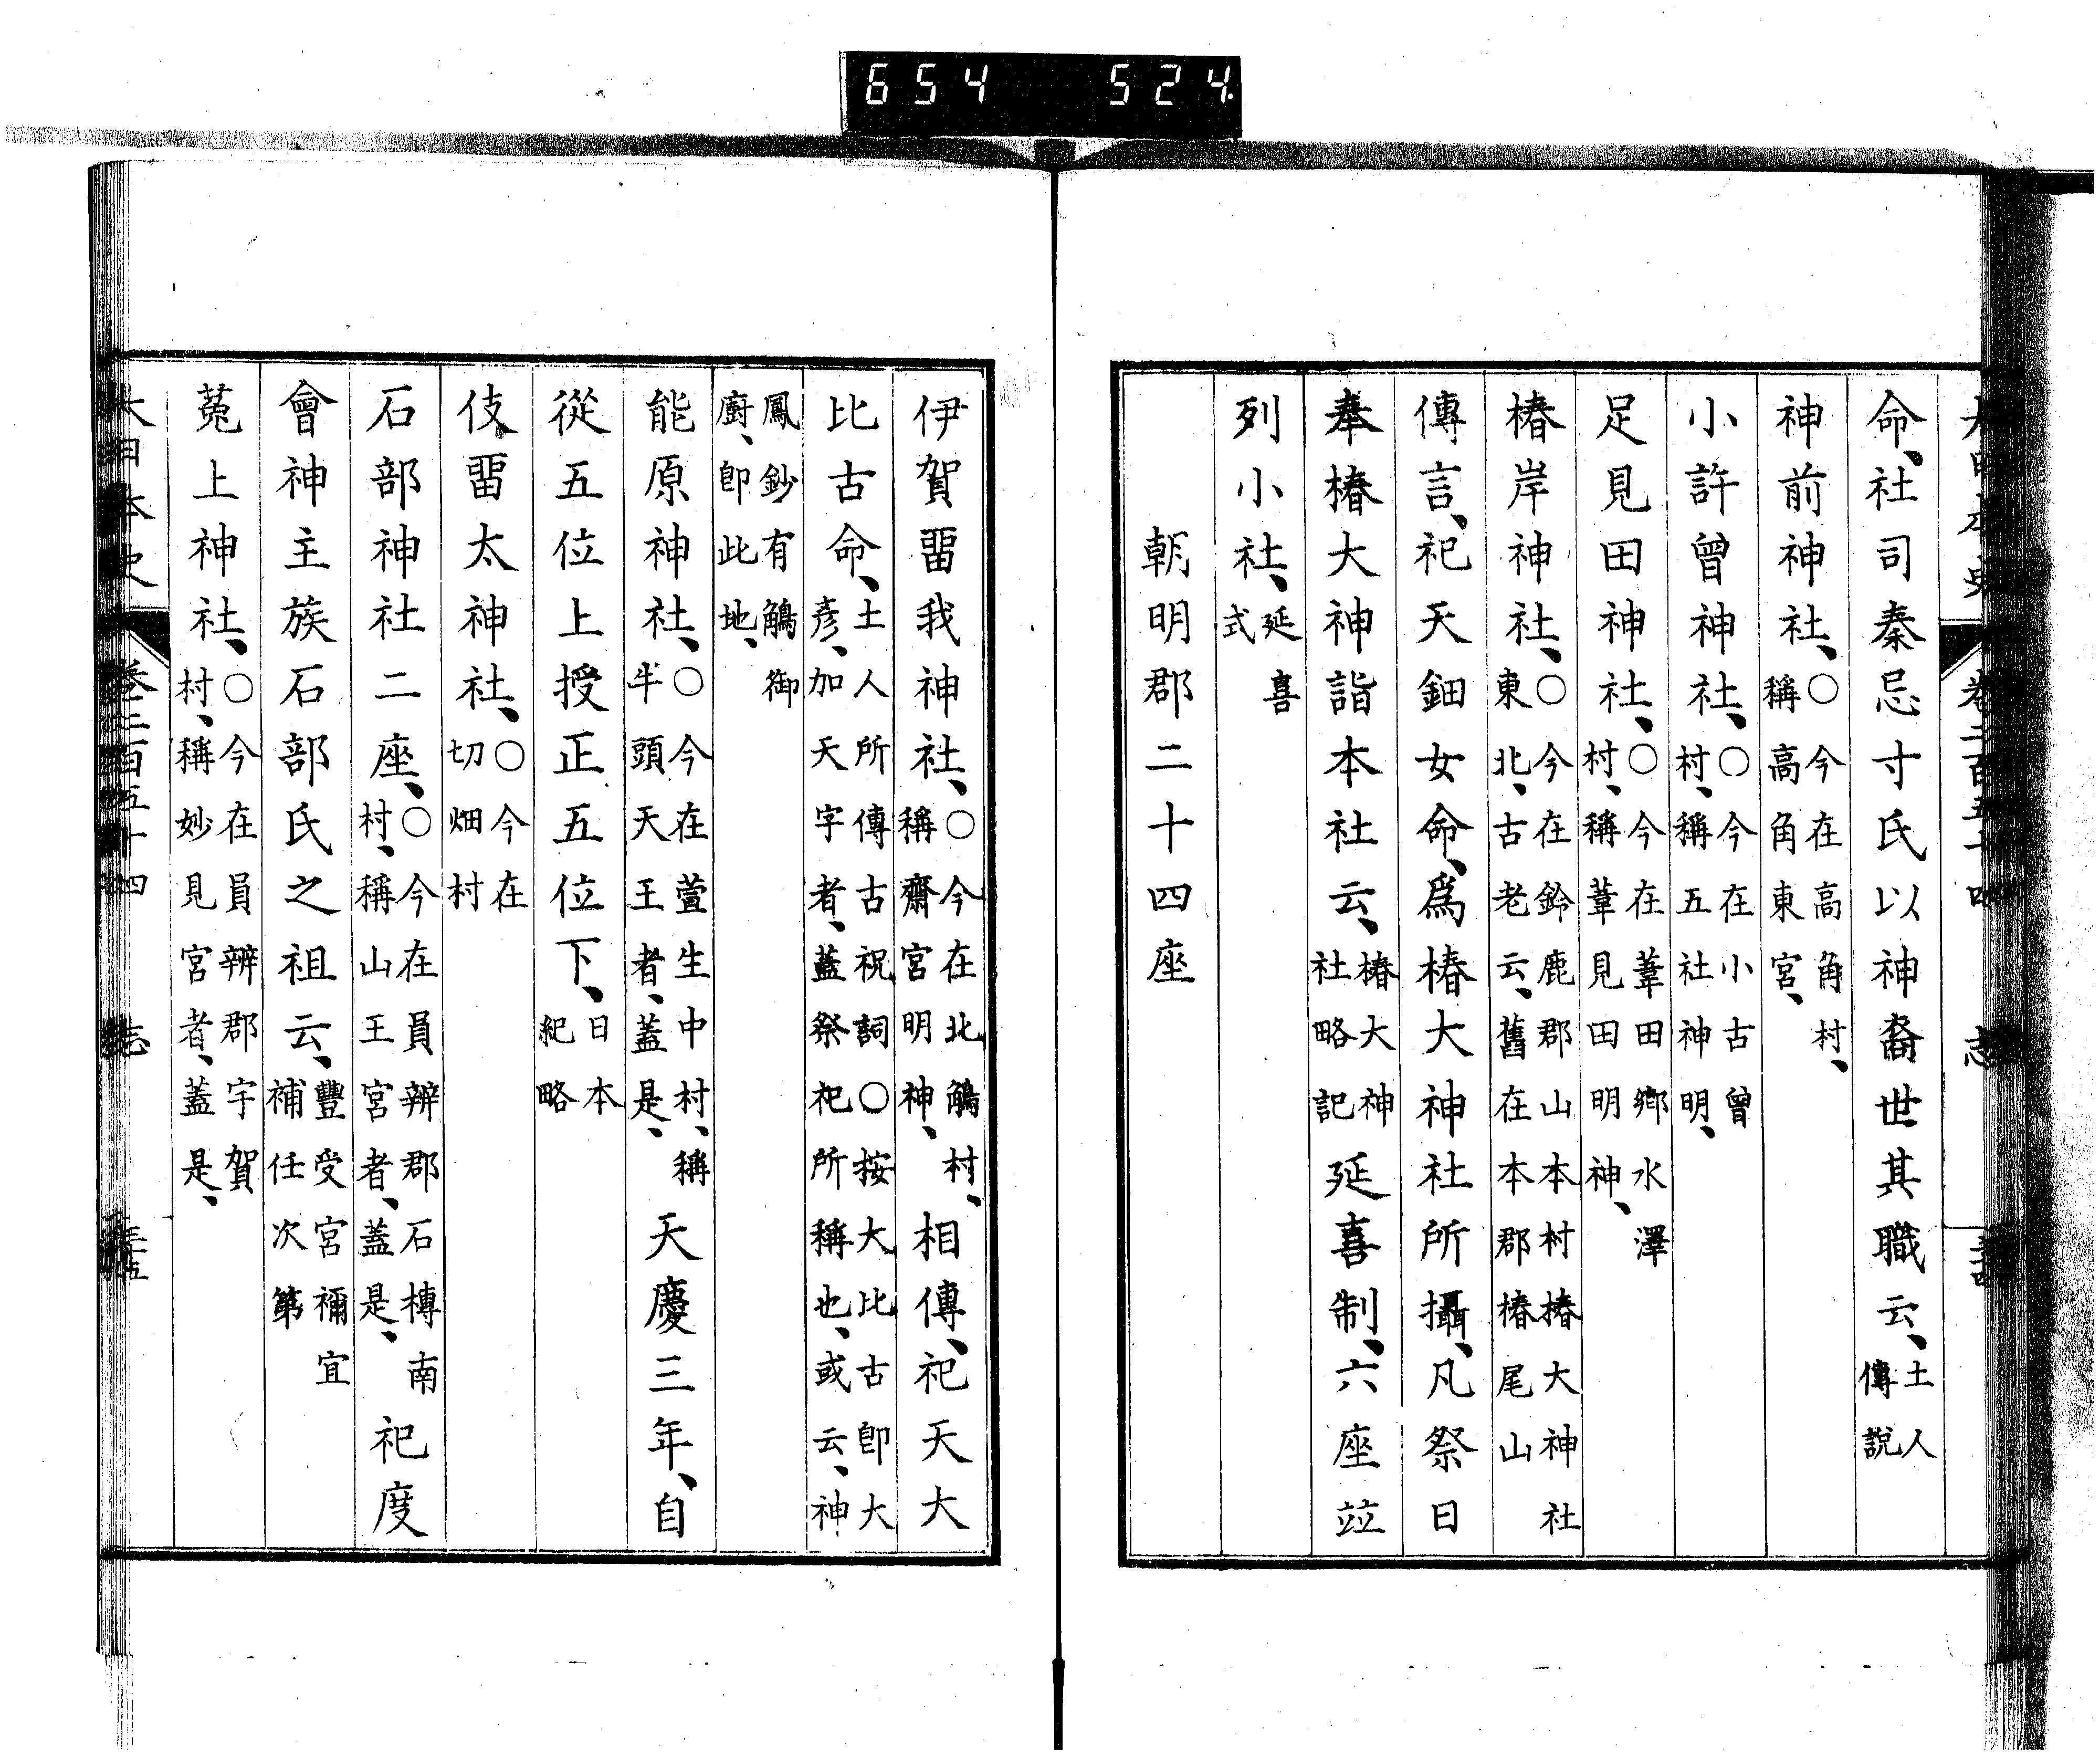 654 524
大日本史 卷二百五十四 志
命、社司秦忌寸氏以神裔世其職云、土人傳說
神前神社、○今在高角村、稱高角東宮、
小許曾神社、○今在小古曾村、稱五社神明、
足見田神社、○今在葦田鄉水澤村、稱葦見田明神、
椿岸神社、○今在鈴鹿郡山本村椿大神社東北、古老云、舊在本郡椿尾山
傳言、祀天鈿女命、爲椿大神社所攝、凡祭日
奉椿大神詣本社云、椿大神社略記延喜制、六座竝
列小社、延喜式
朝明郡二十四座
伊賀畱我神社、○今在北鵤村、稱齋宮明神、相傳、祀天大
比古命、土人所傳古祝詞○按大比古卽大彥、加天字者、蓋祭祀所稱也、或云、神
鳳鈔有鵤御廚、卽此地、
能原神社、○今在萱生中村、稱牛頭天王者、蓋是、天慶三年、自
從五位上授正五位下、日本紀略
伎畱太神社、○今在切畑村
石部神社二座、○今在員辨郡石榑南村、稱山王宮者、蓋是、祀度
會神主族石部氏之祖云、豐受宮禰宜補任次第
菟上神社、○今在員辨郡宇賀村、稱妙見宮者、蓋是、
大日本史 卷二百五十四 志